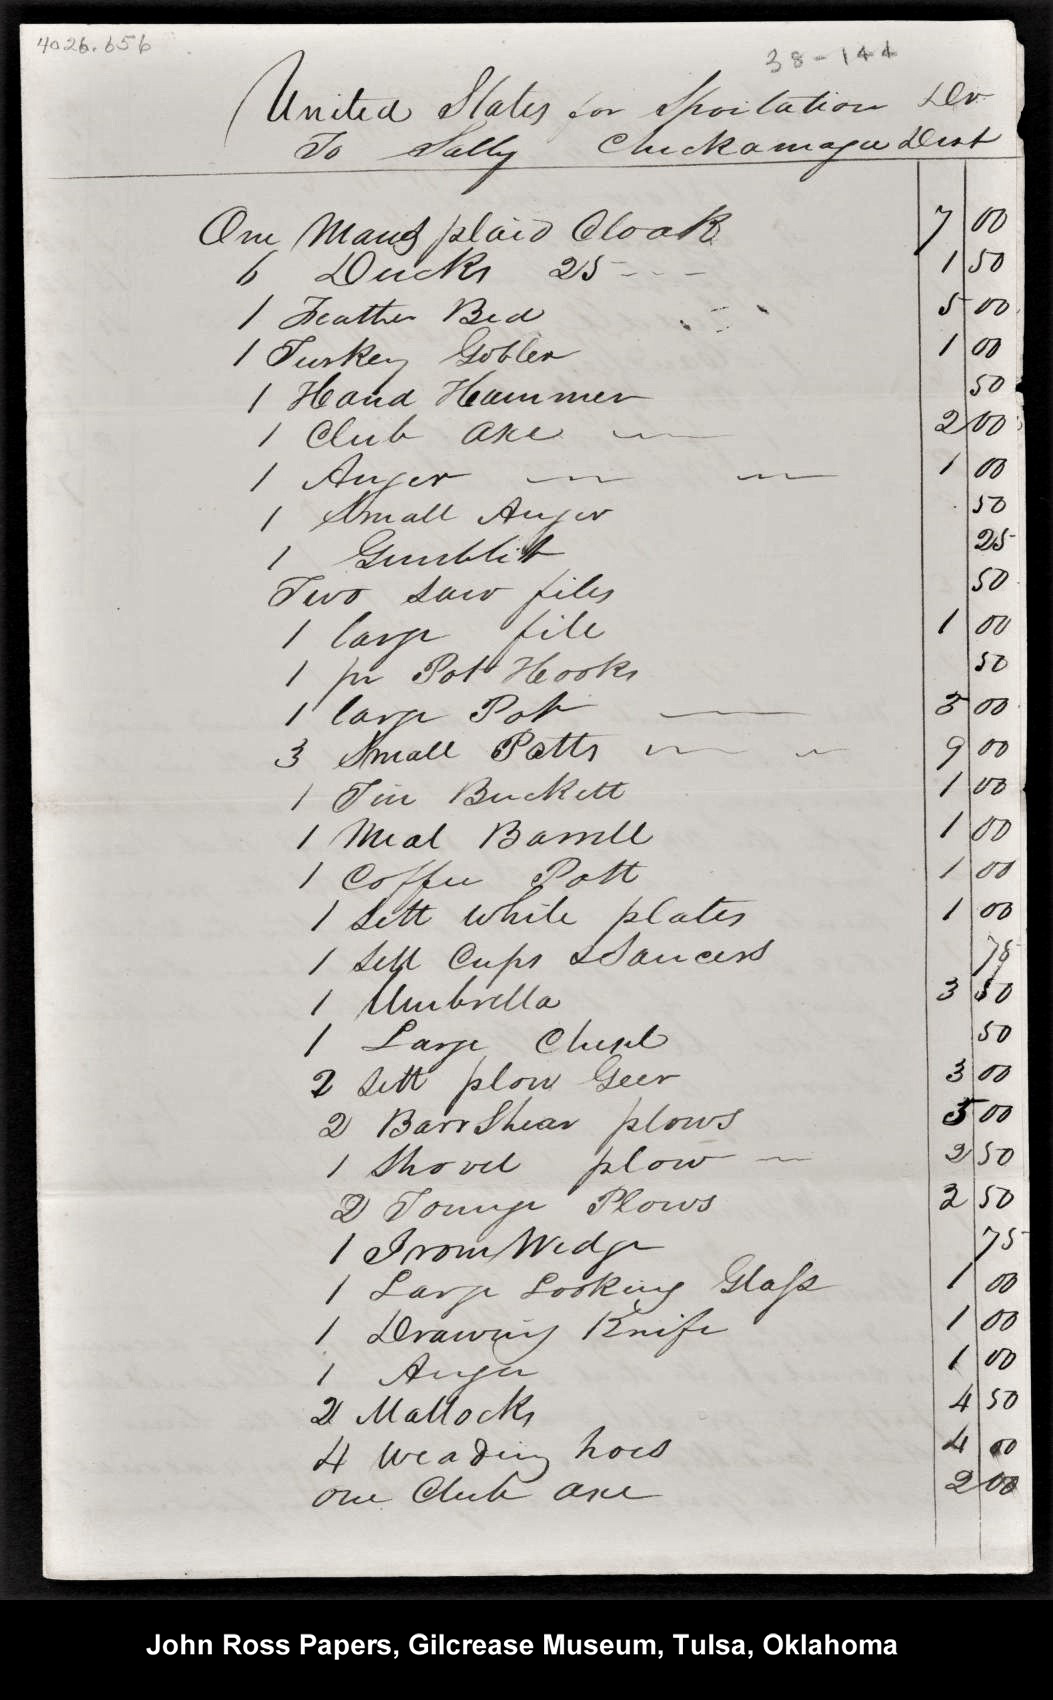 4026.656
38-144
United States for Spoilation Dr
To Sally Chickamaga Dist
One Mans plaid Cloak 7 00
6 Ducks 25 1 50
1 Feather Bed 5 00
1 Turkey Gobler 1 00
1 Hand Hammer 50
1 Club axe 2 00
1 Auger 1 00
1 Small Auger 50
1 Gimblit 25
Two saw files 50
1 large file 1 00
1 pr Pot Hooks 50
1 large Pot 5 00
3 Small Potts 9 00
1 Tin Buckett 1 00
1 Meal Barrell 1 00
1 Coffee Pott 1 00
1 Sett white plates 1 00
1 Sett Cups & Saucers 75
1 Umbrella 3 50
1 Large Chisel 50
2 Sett plow Geer 3 00
2 Barr Shear plows 5 00
1 Shovel plow 2 50
2 Tounge Plows 2 50
1 Iron Wedge 75
1 Large Looking Glass 1 00
1 Drawing Knife 1 00
1 Auger 1 00
2 Mattocks 4 50
4 weading hoes 4 00
one Club axe 2 00
John Ross Papers, Gilcrease Museum, Tulsa, Oklahoma